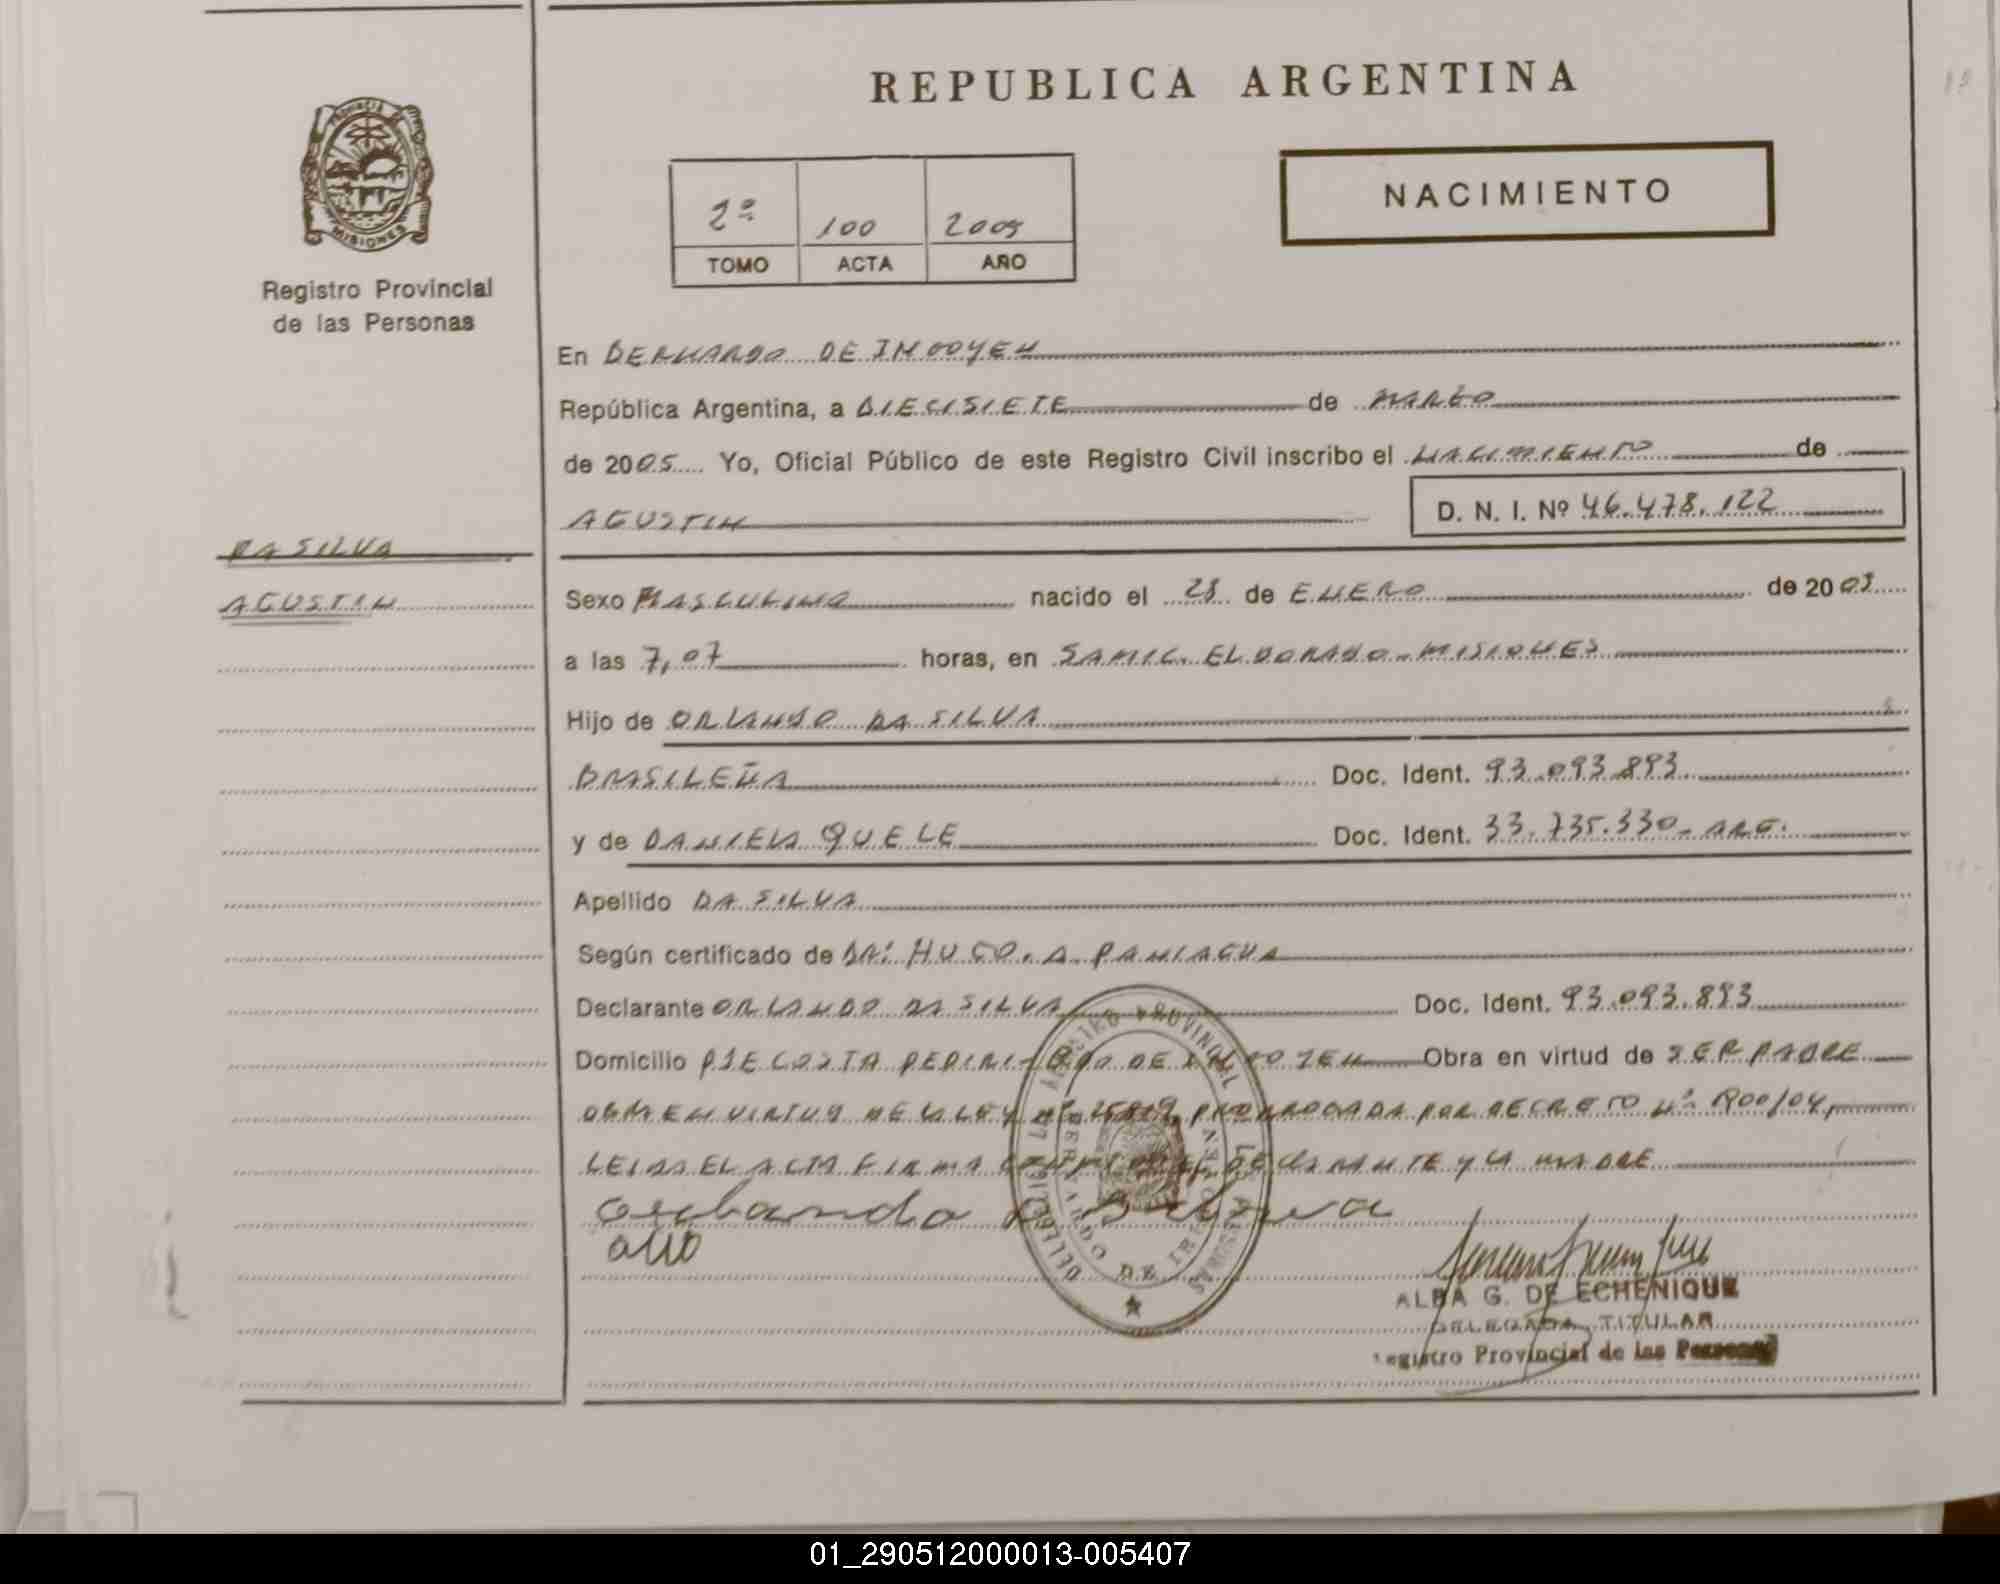 REPUBLICA ARGENTINA
PROVINCIA DE
MISIONES
Registro Provincial
de las Personas
2º 100 2005
TOMO ACTA AÑO
NACIMIENTO
En BERNARDO DE IRIGOYEN
República Argentina, a DIECISIETE de MARZO
de 2005 Yo, Oficial Público de este Registro Civil inscribo el NACIMIENTO de
AGUSTIN D. N. I. Nº 46.478.122
DA SILVA
AGUSTIN
Sexo MASCULINO nacido el 28 de ENERO de 2003
a las 7,07 horas, en SAMIC. ELDORADO-MISIONES
Hijo de ORLANDO DA SILVA
BRASILEÑA Doc. Ident. 93.093.893
y de DANIELA QUELE Doc. Ident. 33.735.330- ARG.
Apellido DA SILVA
Según certificado de DR: HUGO. A. PANIAGUA
Declarante ORLANDO DA SILVA Doc. Ident. 93.093.893
Domicilio PJE COSTA PEPIRI- BDO DE IRIGOYEN Obra en virtud de SER PADRE
OBRA EN VIRTUD DE LA LEY Nº 25819, PRORROGADA POR DECRETO Nº 1800/04,
LEIDA EL ACTA FIRMA CONMIGO EL DECLARANTE Y LA MADRE
orlando da Silva
DELEGACION DEL REGISTRO PROVINCIAL DE LAS PERSONAS
BERNARDO DE IRIGOYEN
ALBA G. DE ECHENIQUE
DELEGADA TITULAR
Registro Provincial de las Personas
01_290512000013-005407